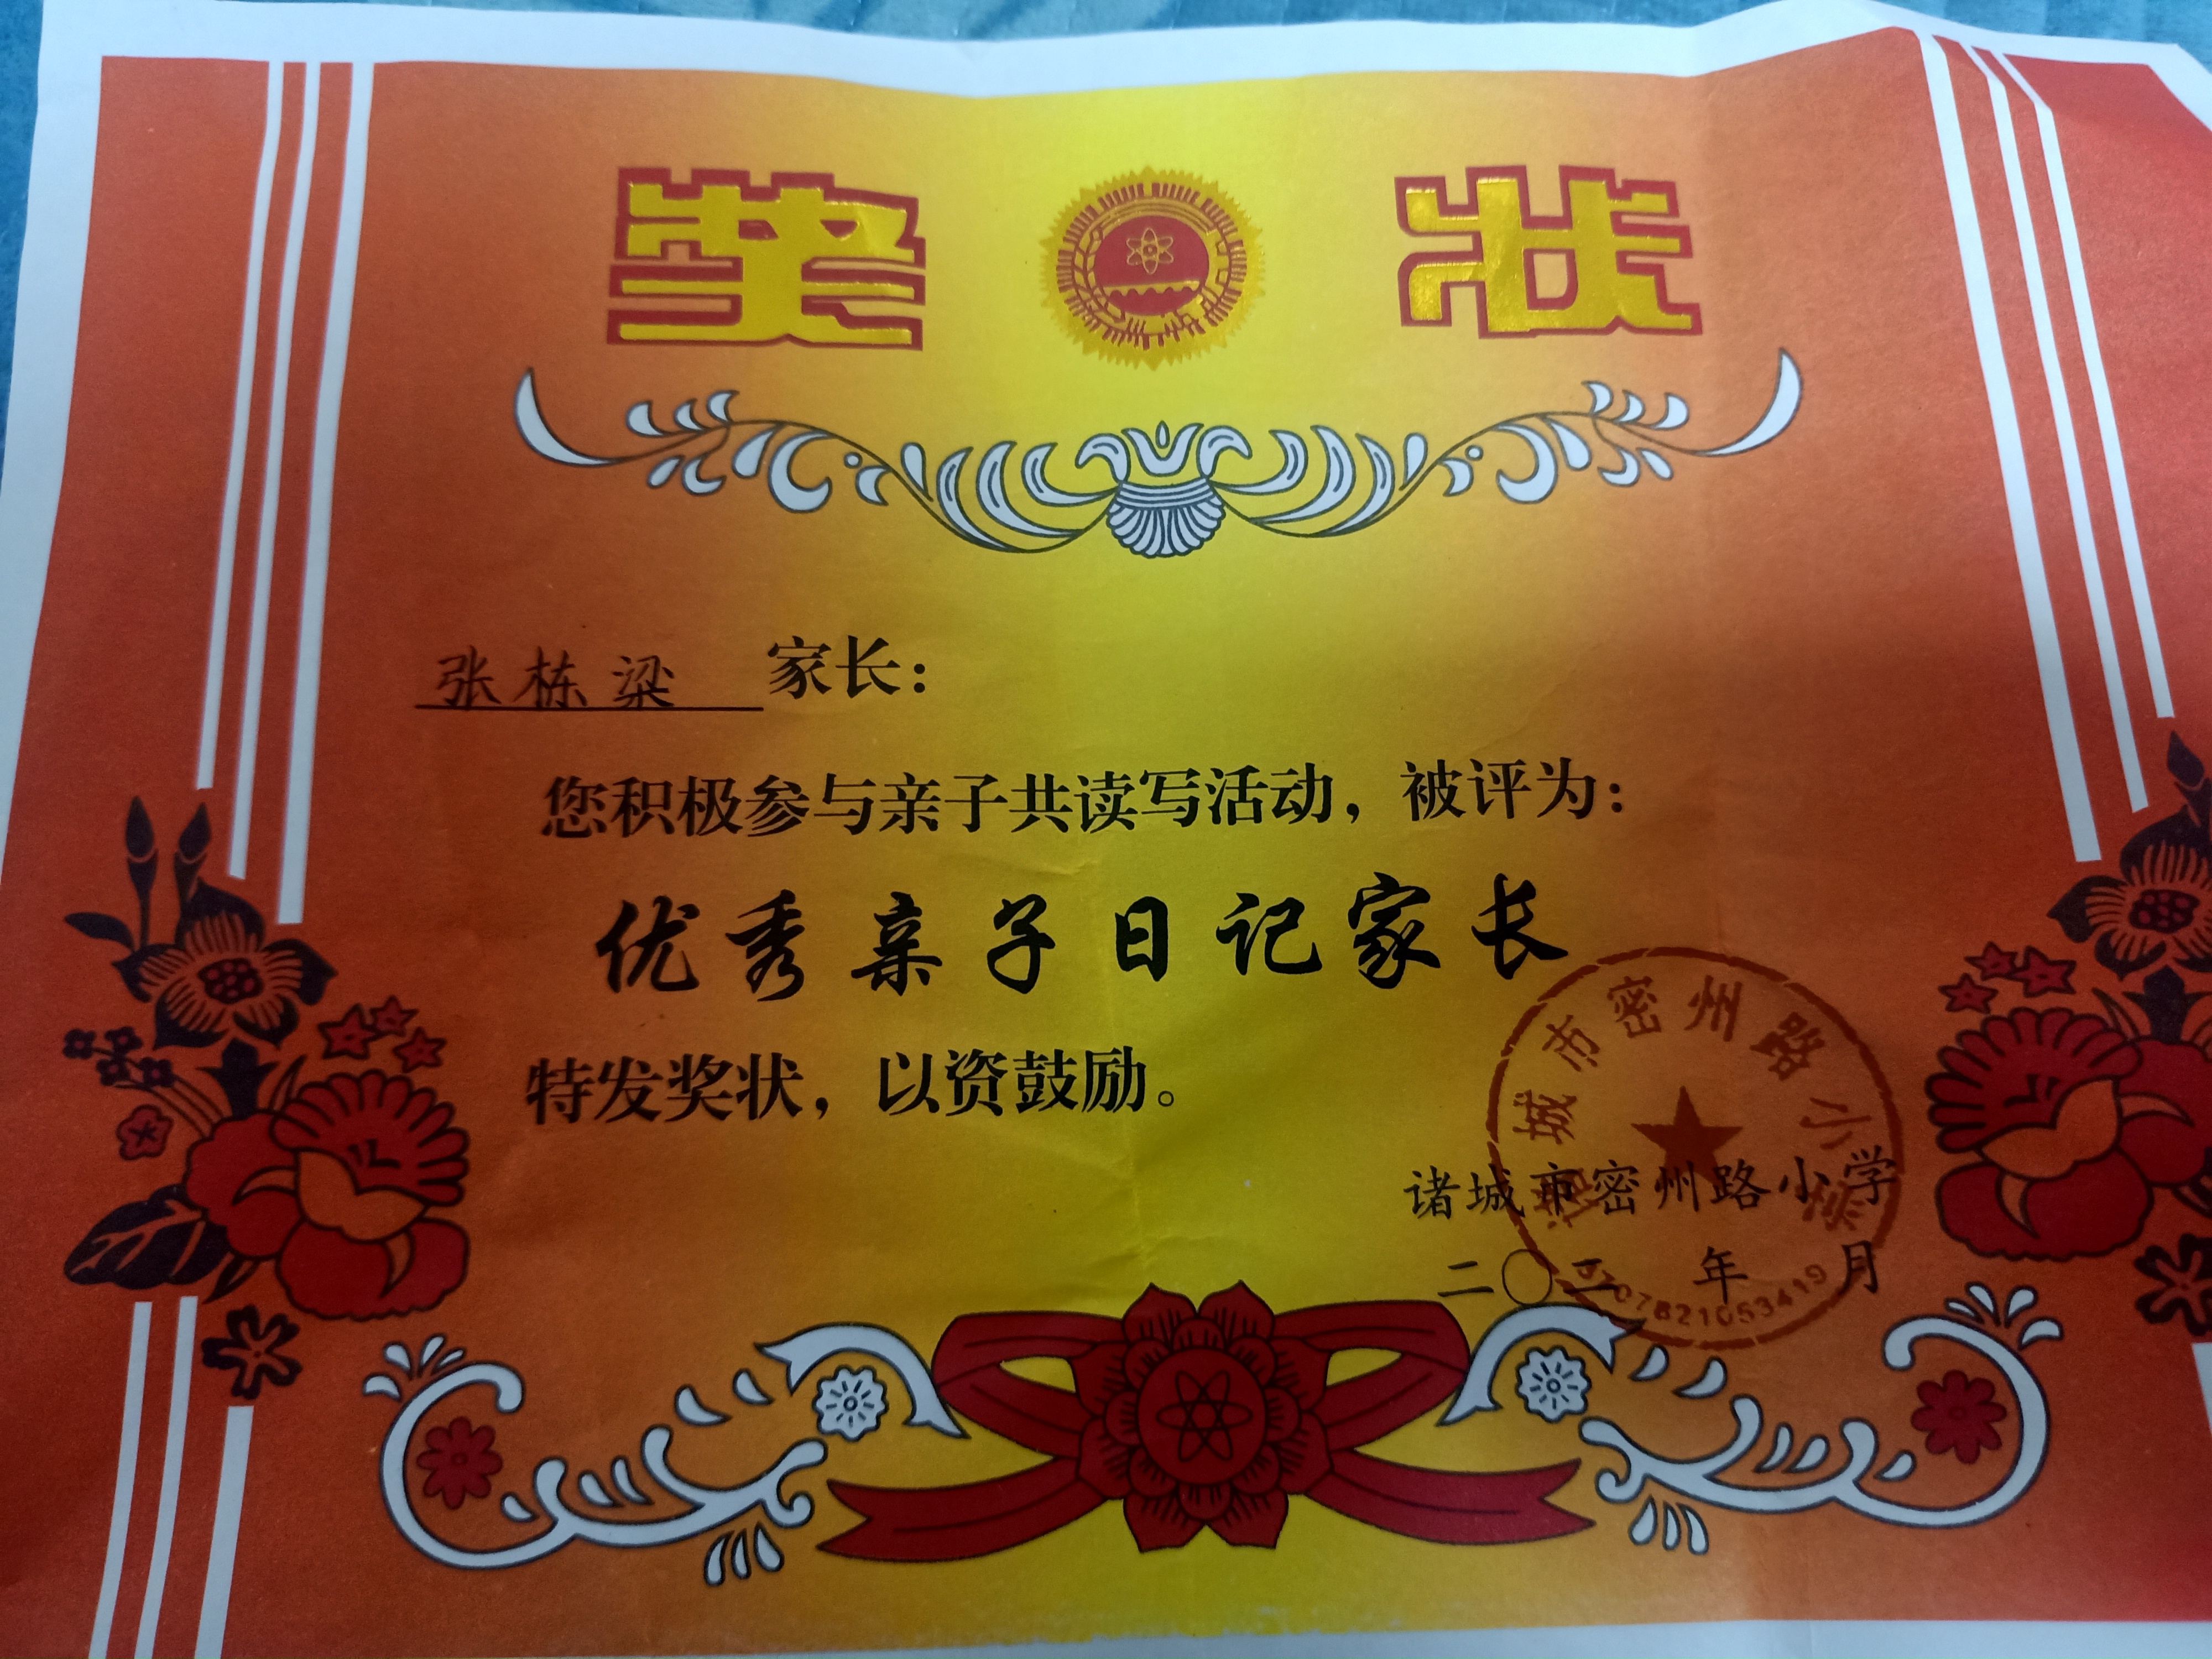 奖 状
张栋梁 家长：
您积极参与亲子共读写活动，被评为：
优秀亲子日记家长
特发奖状，以资鼓励。
诸城市密州路小学
诸城市密州路小学
二〇一 年 月